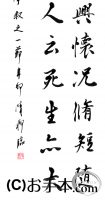 興懷況脩短隨
人云死生亦大
叙之一節
(C)お手本.com